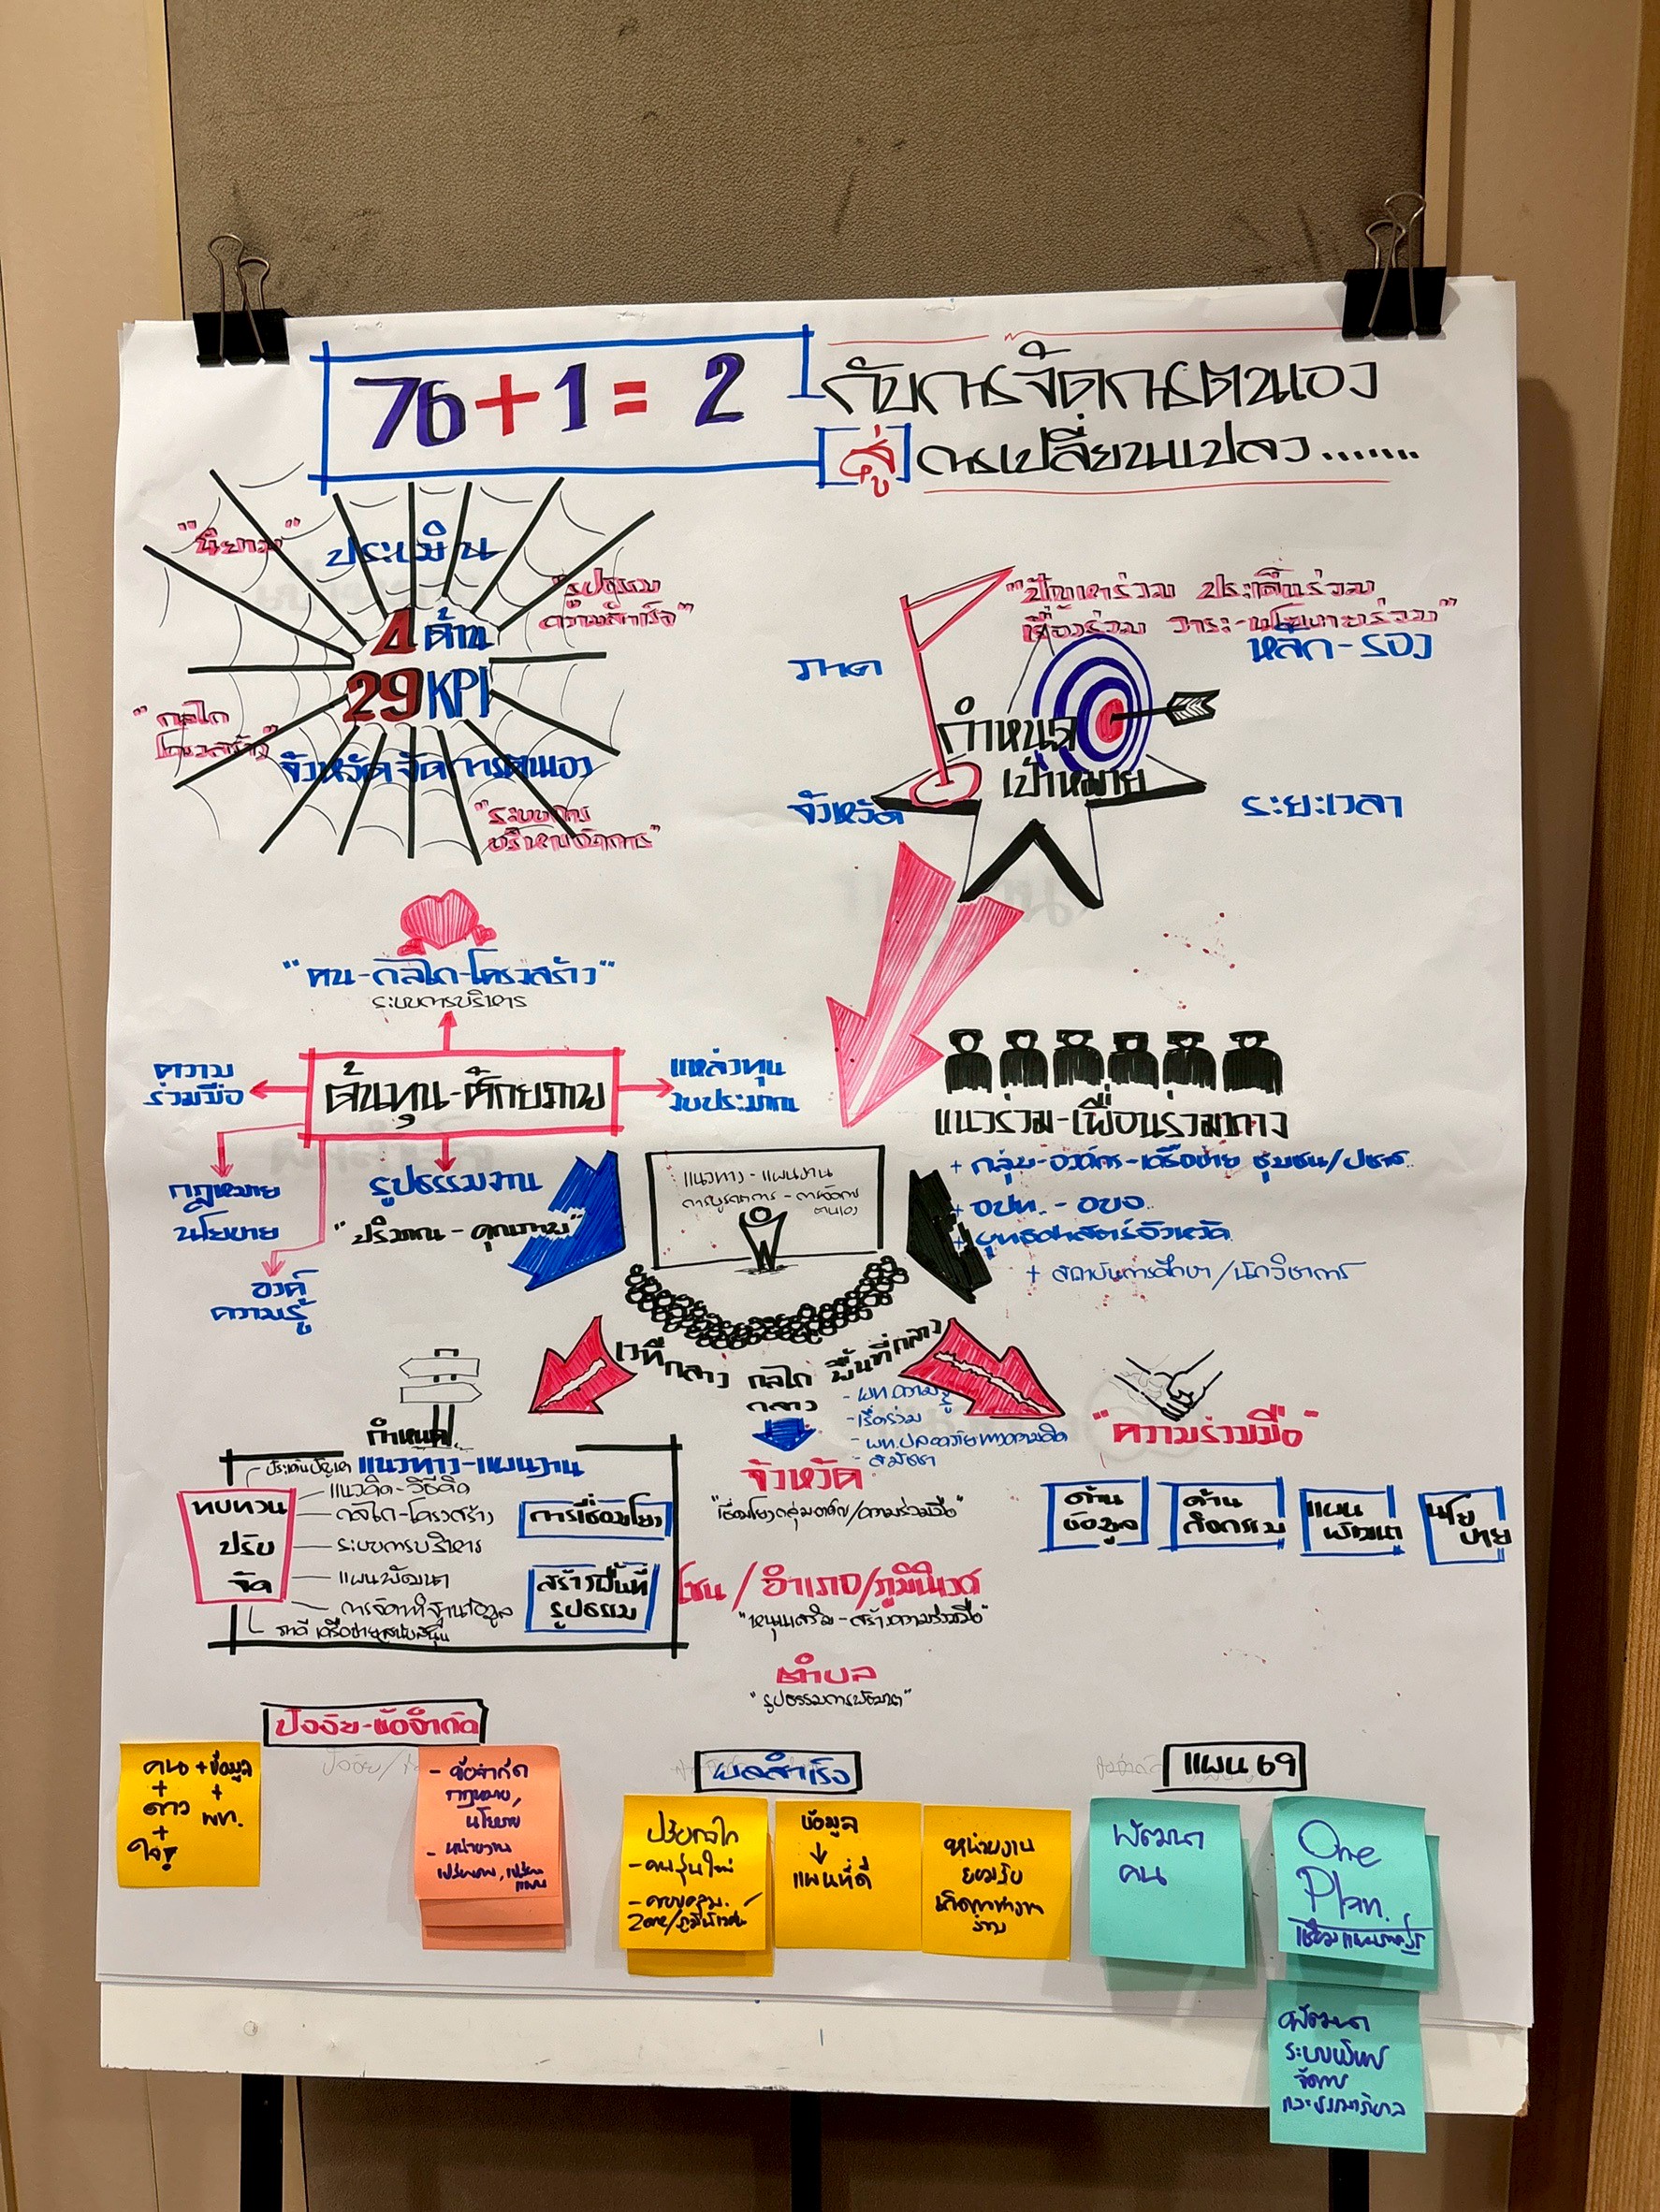 76+1= 2 กับการจัดการตนเอง
สู่ การเปลี่ยนแปลง.......
"นิยาม"
ประเมิน
"รูปธรรม
ความสำเร็จ"
4 ด้าน
29 KPI
"กลไก
โครงสร้าง"
จังหวัดจัดการตนเอง
"ระบบการ
บริหารจัดการ"
"ปัญหาร่วม ประเด็นร่วม
เรื่องร่วม วาระ-นโยบายร่วม"
หลัก-รอง
ภาค
กำหนด
เป้าหมาย
จังหวัด
ระยะเวลา
"คน-กลไก-โครงสร้าง"
ระบบการบริหาร
ความ
ร่วมมือ
ต้นทุน-ศักยภาพ
แหล่งทุน
งบประมาณ
กฎหมาย
นโยบาย
รูปธรรมงาน
"ปริมาณ-คุณภาพ"
องค์
ความรู้
แนวร่วม-เพื่อนร่วมทาง
+ กลุ่ม-องค์กร-เครือข่าย ชุมชน/ปชช.
+ อปท.-อบจ.
+ ยุทธศาสตร์จังหวัด
+ สถาบันการศึกษา/นักวิชาการ
แนวทาง-แผนงาน
การบูรณาการ-การจัดการ
ตนเอง
เวทีกลาง กลไก พื้นที่กลาง
กลาง
- พท.ความรู้
- เรื่องร่วม
- พท.ปลอดภัยทางความคิด
- สมัชชา
กำหนด
แนวทาง-แผนงาน
ประเด็นปัญหา
แนวคิด-วิธีคิด
กลไก-โครงสร้าง
ระบบการบริหาร
แผนพัฒนา
การจัดทำฐานข้อมูล
ภาคีเครือข่ายสนับสนุน
ทบทวน
ปรับ
จัด
การเชื่อมโยง
สร้างพื้นที่
รูปธรรม
จังหวัด
"เชื่อมโยงกลุ่มองค์กร/ความร่วมมือ"
โซน/อำเภอ/ภูมินิเวศ
"หนุนเสริม-สร้างความร่วมมือ"
ตำบล
"รูปธรรมการพัฒนา"
"ความร่วมมือ"
ด้าน
ข้อมูล
ด้าน
กิจกรรม
แผน
พัฒนา
นโย
บาย
ปัจจัย-ข้อจำกัด
คน + ข้อมูล
+ +
ดาว พท.
+
ใจ!
- ข้อจำกัด
กฎหมาย,
นโยบาย
- หน่วยงาน
ผลสำเร็จ
ปรับกลไก
- คนรุ่นใหม่
- ครอบคลุม.
Zone/ภูมินิเวศน์
ข้อมูล
↓
แผนที่ดี
หน่วยงาน
ยอมรับ
ร่วม
แผน 69
พัฒนา
คน
One
Plan.
พัฒนา
ระบบบริหาร
จัดการ
และธรรมาภิบาล